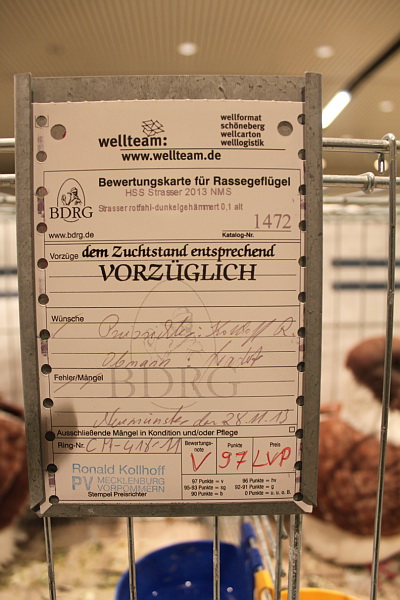 wellteam:
wellformat
schöneberg
wellcarton
welllogistik
www.wellteam.de
BDRG
www.bdrg.de
Bewertungskarte für Rassegeflügel
HSS Strasser 2013 NMS
Strasser rotfahl-dunkelgehämmert 0,1 alt
Katalog-Nr. 1472
Vorzüge dem Zuchtstand entsprechend
VORZÜGLICH
Wünsche
Preisrichter: Kollhoff R.
Obmann:
Fehler/Mängel
BDRG
Neumünster den 28.11.13
Ausschließende Mängel in Kondition und/oder Pflege
Ring-Nr.
Bewertungs-
note
Punkte
Preis
V 97 LVP
Ronald Kollhoff
PV MECKLENBURG
VORPOMMERN
Stempel Preisrichter
97 Punkte = v
96 Punkte = hv
95-93 Punkte = sg
92-91 Punkte = g
90 Punkte = b
0 Punkte = u. o. B.